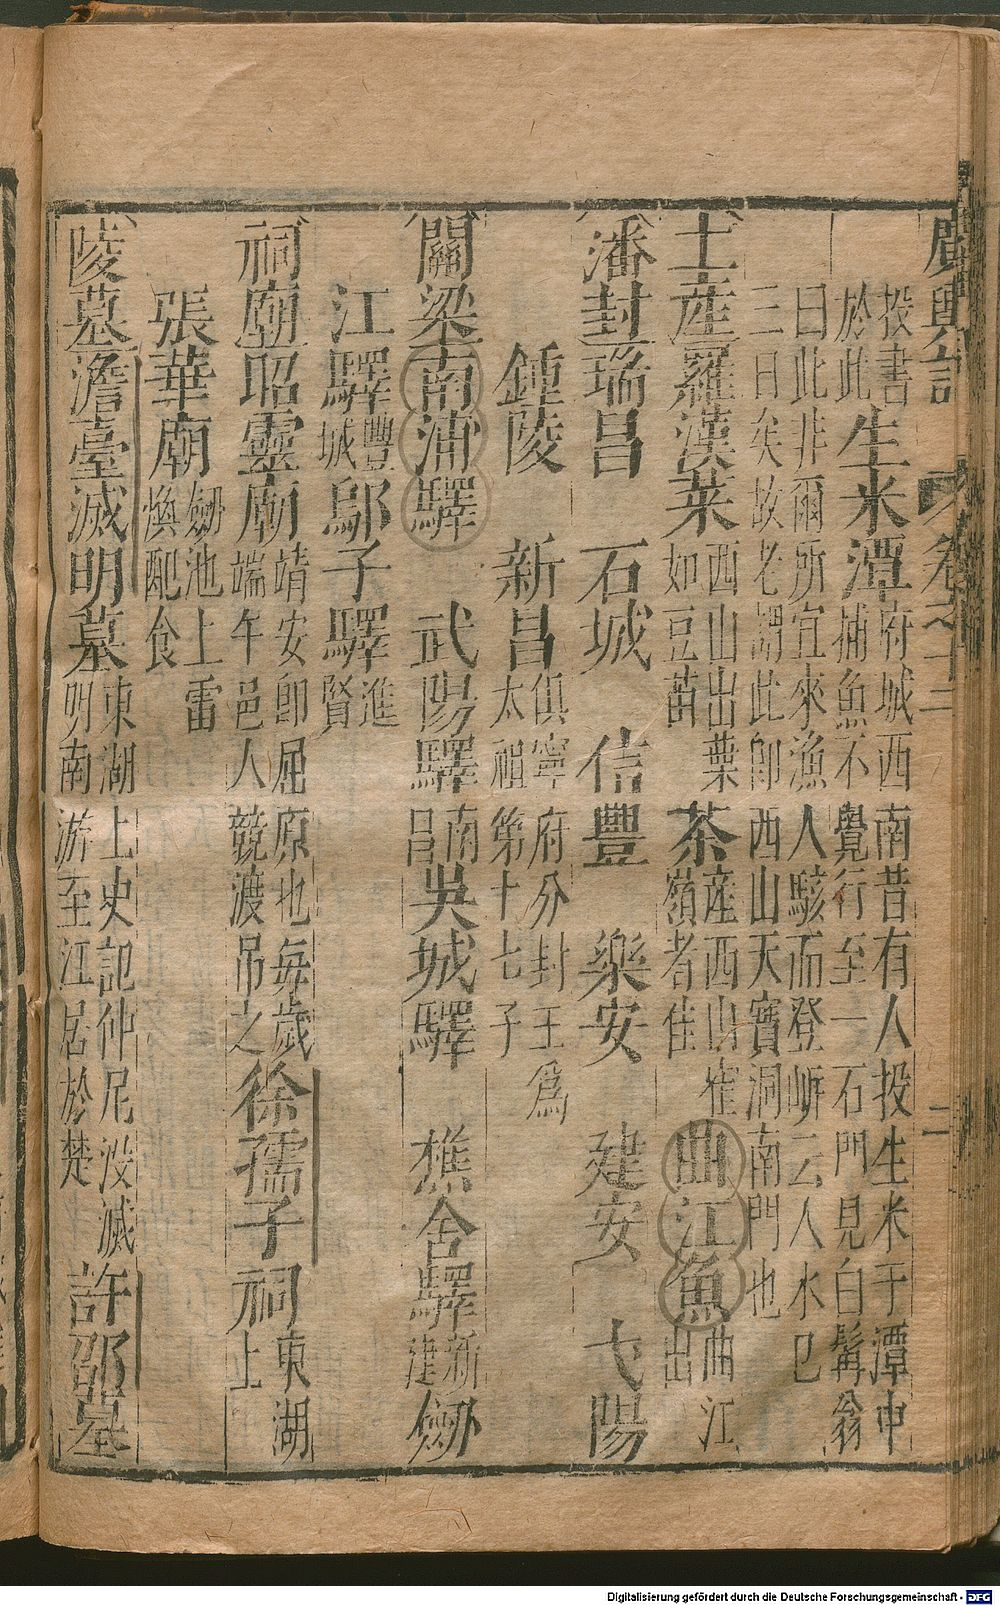 廣輿記 卷之十二 二
投書於此 生米潭 府城西南昔有人投生米于潭中捕魚不覺行至一石門見白髯翁
曰此非爾所宜來漁人駭而登岍云人水已三日矣故老謂此卽西山天寶洞南門也
土産 羅漢菜 西山出葉如豆苗 茶 産西山崔嶺者佳 曲江魚 曲江出
潘封 瑞昌 石城 信豐 樂安 建安 弋陽
鍾陵 新昌 俱寧府分封王爲太祖第十七子
關梁 南浦驛 武陽驛 南昌 吳城驛 樵舍驛 新建 劒
江驛 豐城 鄔子驛 進賢
祠廟 昭靈廟 靖安卽屈原也每歲端午邑人競渡吊之 徐孺子祠 東湖上
張華廟 劒池上雷煥配食
陵墓 澹臺滅明墓 東湖上史記仲尼没滅明南游至江居於楚 許邵墓
Digitalisierung gefördert durch die Deutsche Forschungsgemeinschaft - DFG